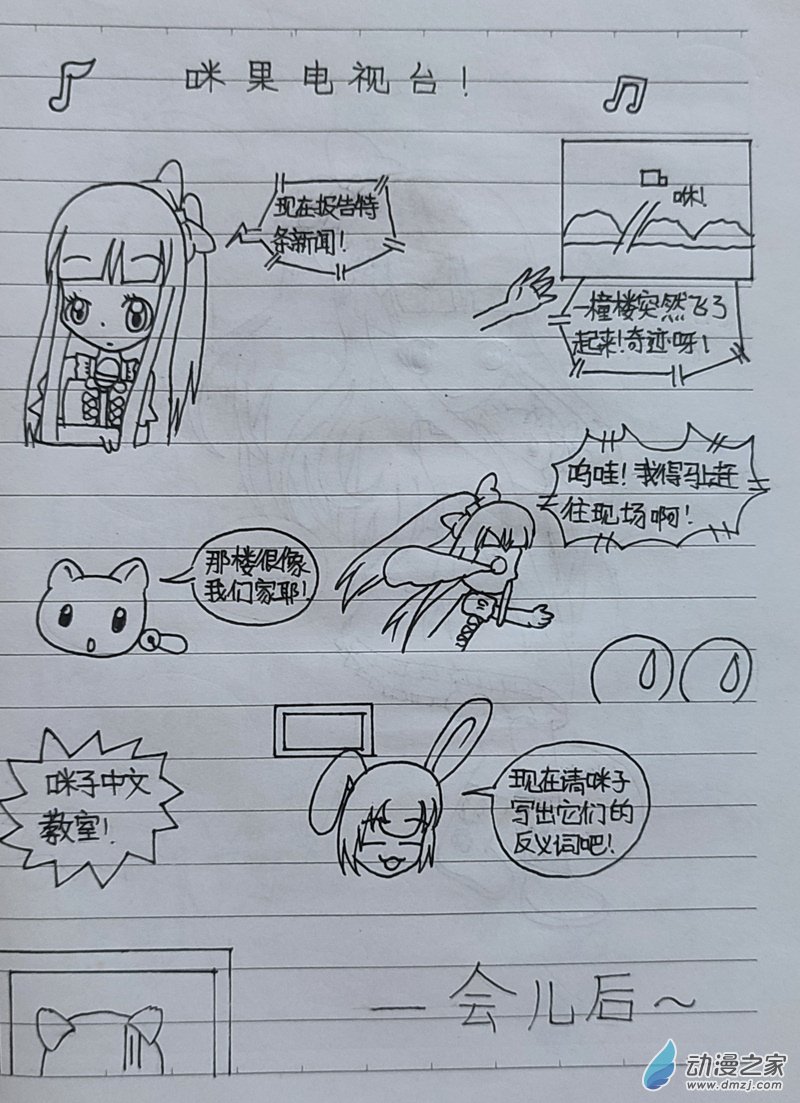 咪果电视台!
现在报告特
条新闻!
咻!
一撞楼突然飞了
起来!奇迹呀!
呜哇!我得马上赶
住现场啊!
那楼很像
我们家耶!
咪子中文
教室!
现在请咪子
写出它们的
反义词吧!
一会儿后~
动漫之家
www.dmzj.com